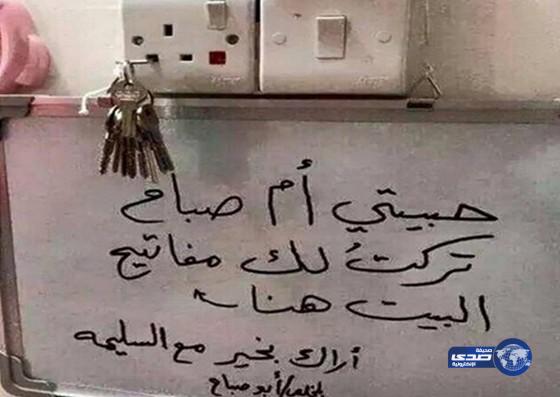 حبيبتي أم صباح
تركتُ لك مفاتيح
البيت هنا
أراك بخير مع السليمه
المخلص/أبو صباح
صحيفة
صدى
الإلكترونية